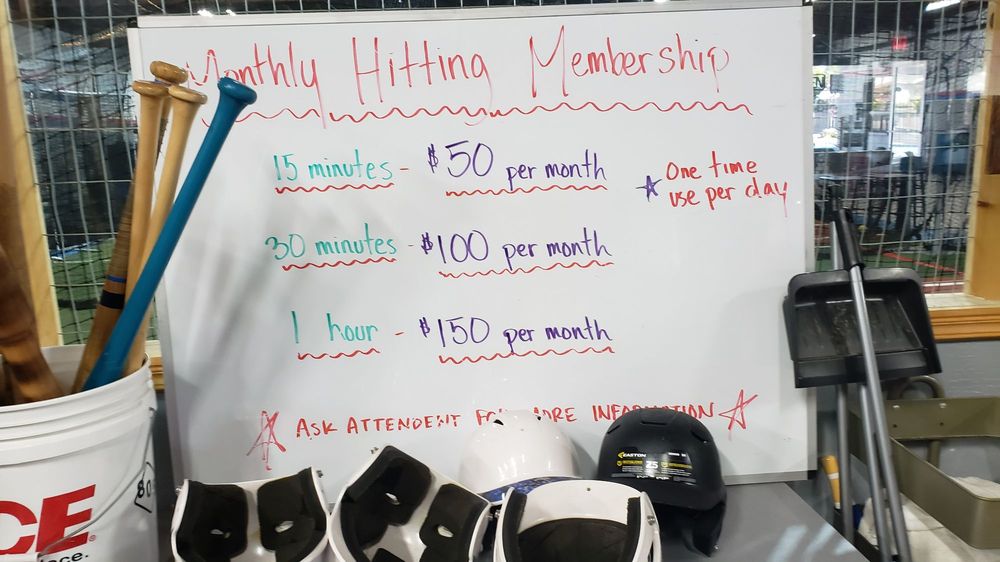 Monthly Hitting Membership
15 minutes - $50 per month
★ One time
use per day
30 minutes - $100 per month
1 hour - $150 per month
☆ ASK ATTENDENT FOR MORE INFORMATION ☆
EASTON
Z5
CE
ace.